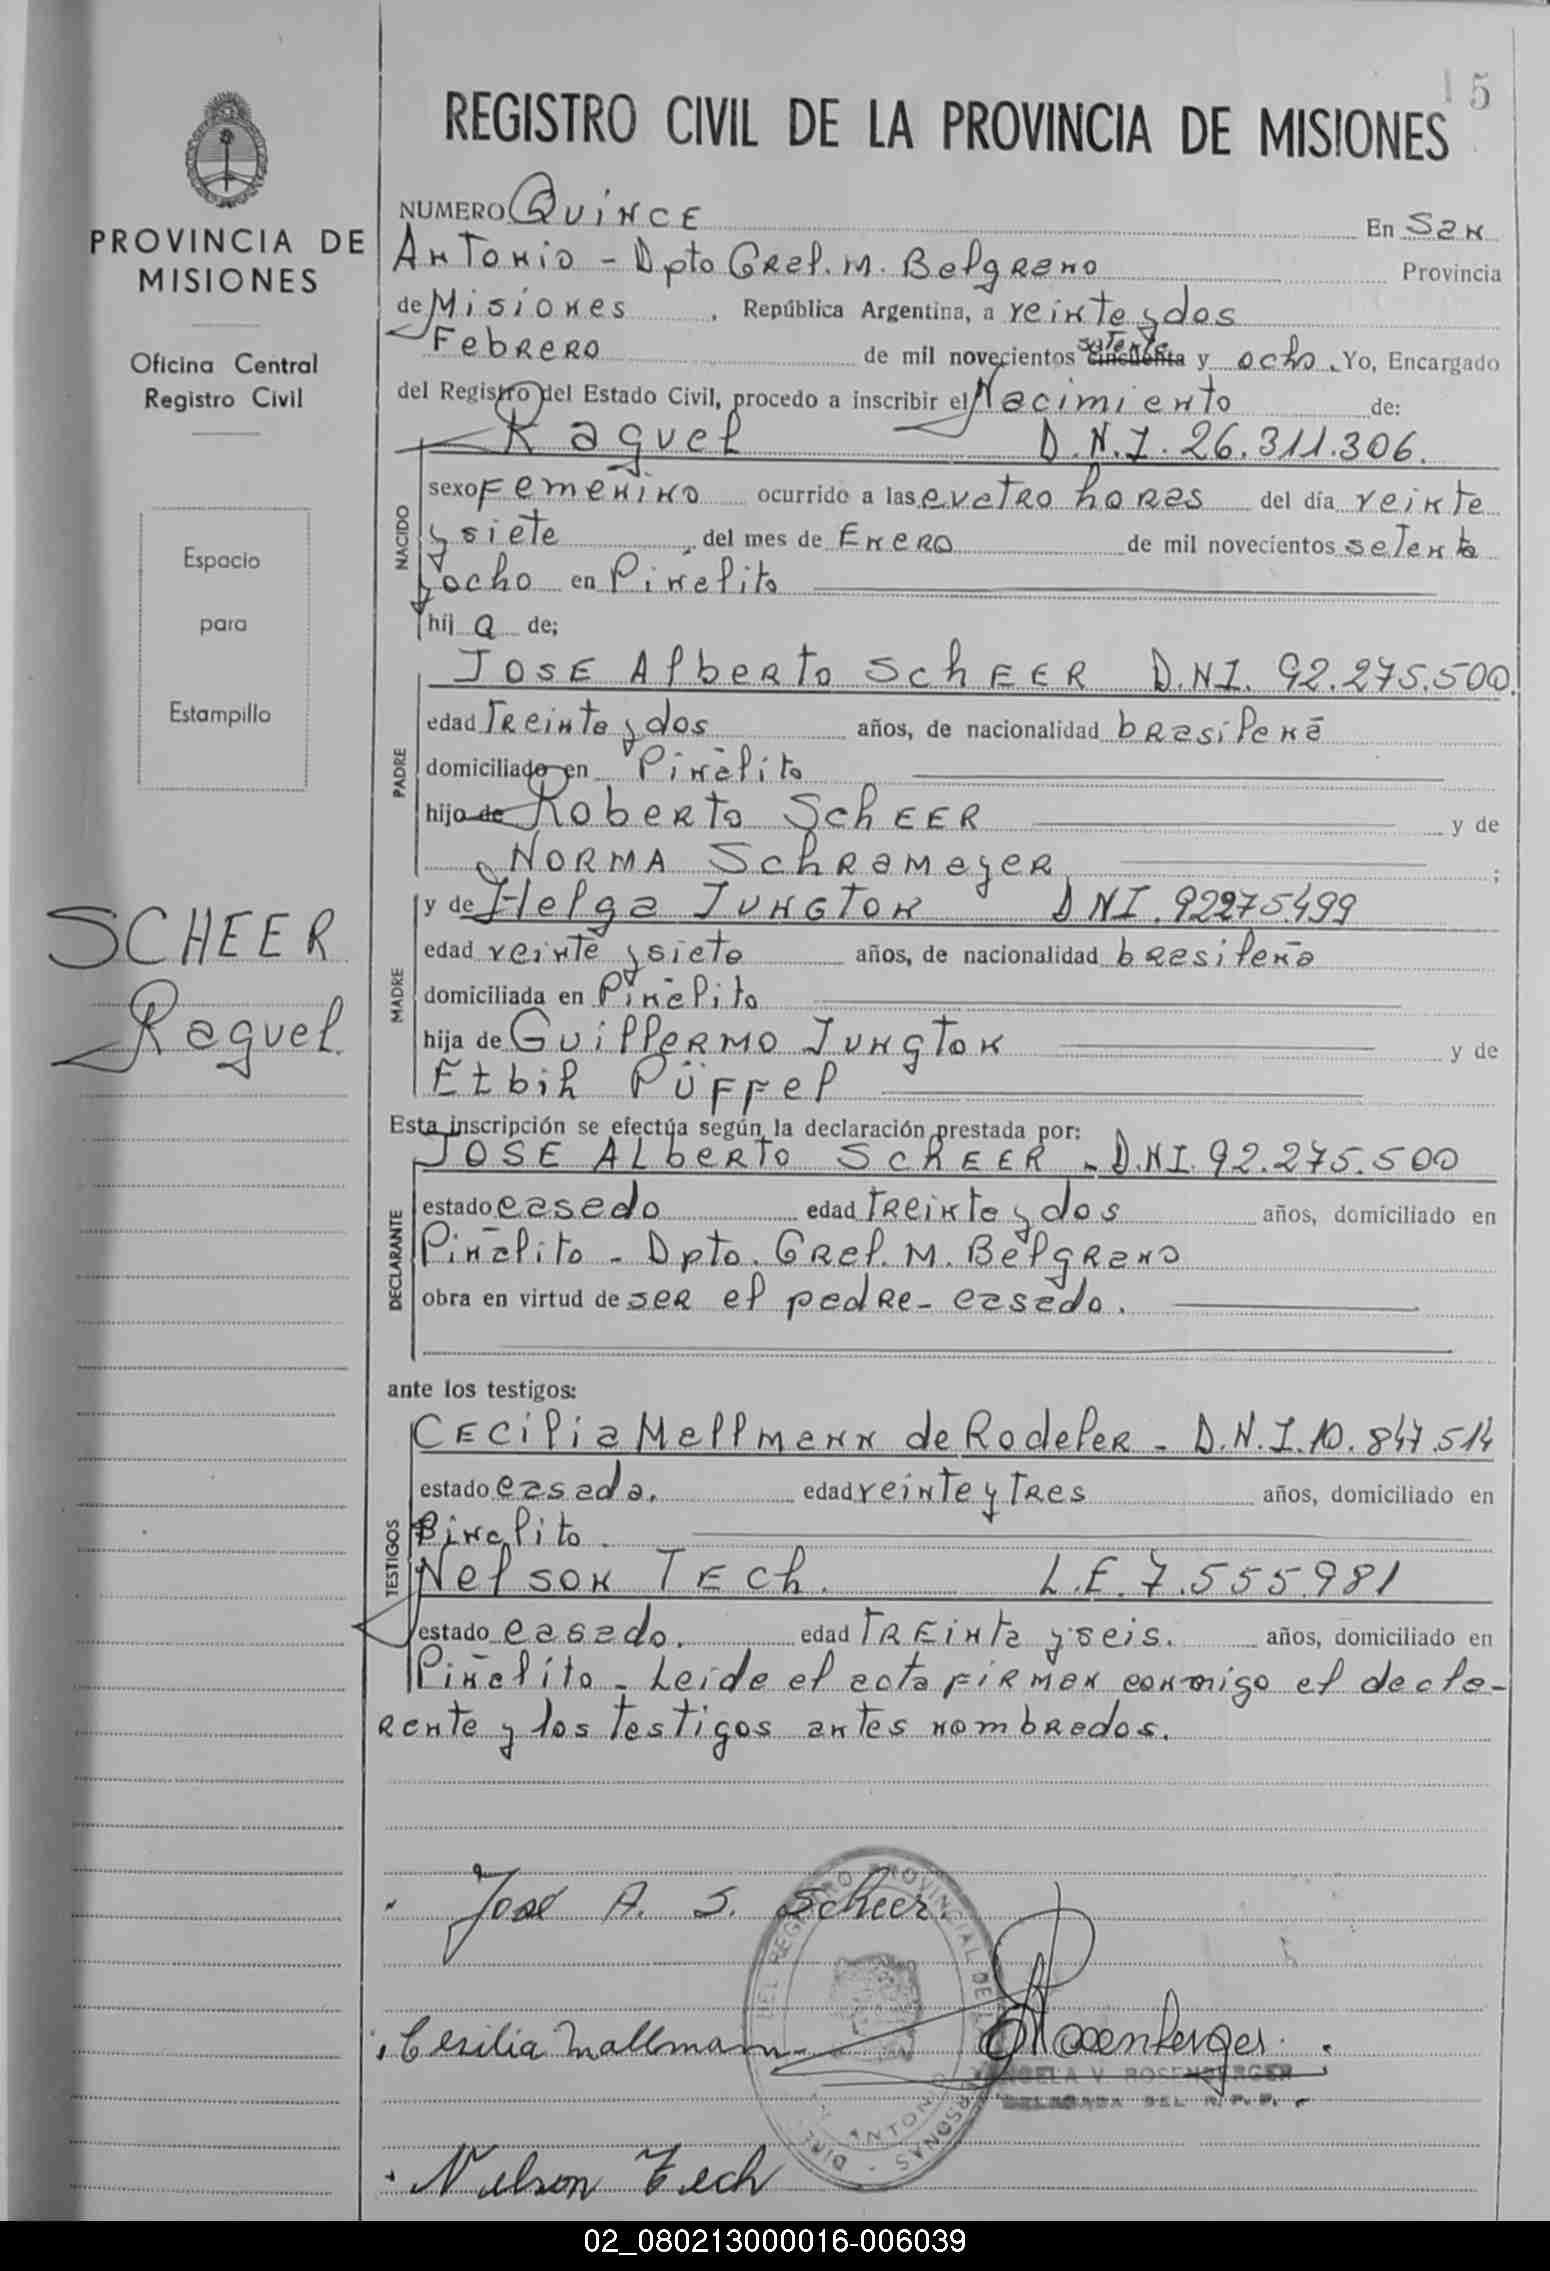 15
REGISTRO CIVIL DE LA PROVINCIA DE MISIONES
PROVINCIA DE
MISIONES
Oficina Central
Registro Civil
Espacio
para
Estampillo
SCHEER
Raquel
NUMERO QUINCE En San
Antonio - Dpto Gral. M. Belgrano Provincia
de Misiones, República Argentina, a veinte y dos
Febrero de mil novecientos cincuenta setenta y ocho. Yo, Encargado
del Registro del Estado Civil, procedo a inscribir el Nacimiento de:
Raquel D.N.I. 26.311.306.
NACIDO
sexo Femenino ocurrido a las cuatro horas del día veinte
y siete, del mes de Enero de mil novecientos setenta
y ocho en Piñalito
hij a de;
PADRE
JOSE Alberto SCHEER D.NI. 92.275.500.
edad Treinta y dos años, de nacionalidad brasileña
domiciliado en Piñalito
hijo de Roberto SCHEER y de
NORMA Schrameyer ;
MADRE
y de Helga JUNGTON DNI. 92275499
edad veinte y siete años, de nacionalidad brasileña
domiciliada en Piñalito
hija de Guillermo Jungton y de
Etbih Püffel
Esta inscripción se efectúa según la declaración prestada por:
DECLARANTE
JOSE ALberto SCHEER - D.NI. 92.275.500
estado casado edad Treinta y dos años, domiciliado en
Piñalito - Dpto. Gral. M. Belgrano
obra en virtud de ser el padre - casado.
ante los testigos:
TESTIGOS
Cecilia Mallmann de Rodeler - D.N.I. 10.847.514
estado casada. edad veinte y tres años, domiciliado en
Piñalito.
Nelson Tech. L.E. 7.555.981
estado casado. edad treinta y seis. años, domiciliado en
Piñalito - Leida el acta firman conmigo el decla-
rante y los testigos antes nombrados.
José A. S. Scheer.
DEL REGISTRO PROVINCIAL DE
Cesilia Mallmann
Rosenberger.
ANGELA V. ROSENBERGER
DELEGADA DEL R.P.P.
Nelson Tech
02_080213000016-006039